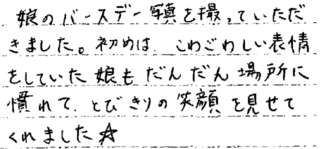 娘のバースデー写真を撮っていただ
きました。初めは、こわごわしい表情
をしていた娘もだんだん場所に
慣れて、とびきりの笑顔を見せて
くれました☆